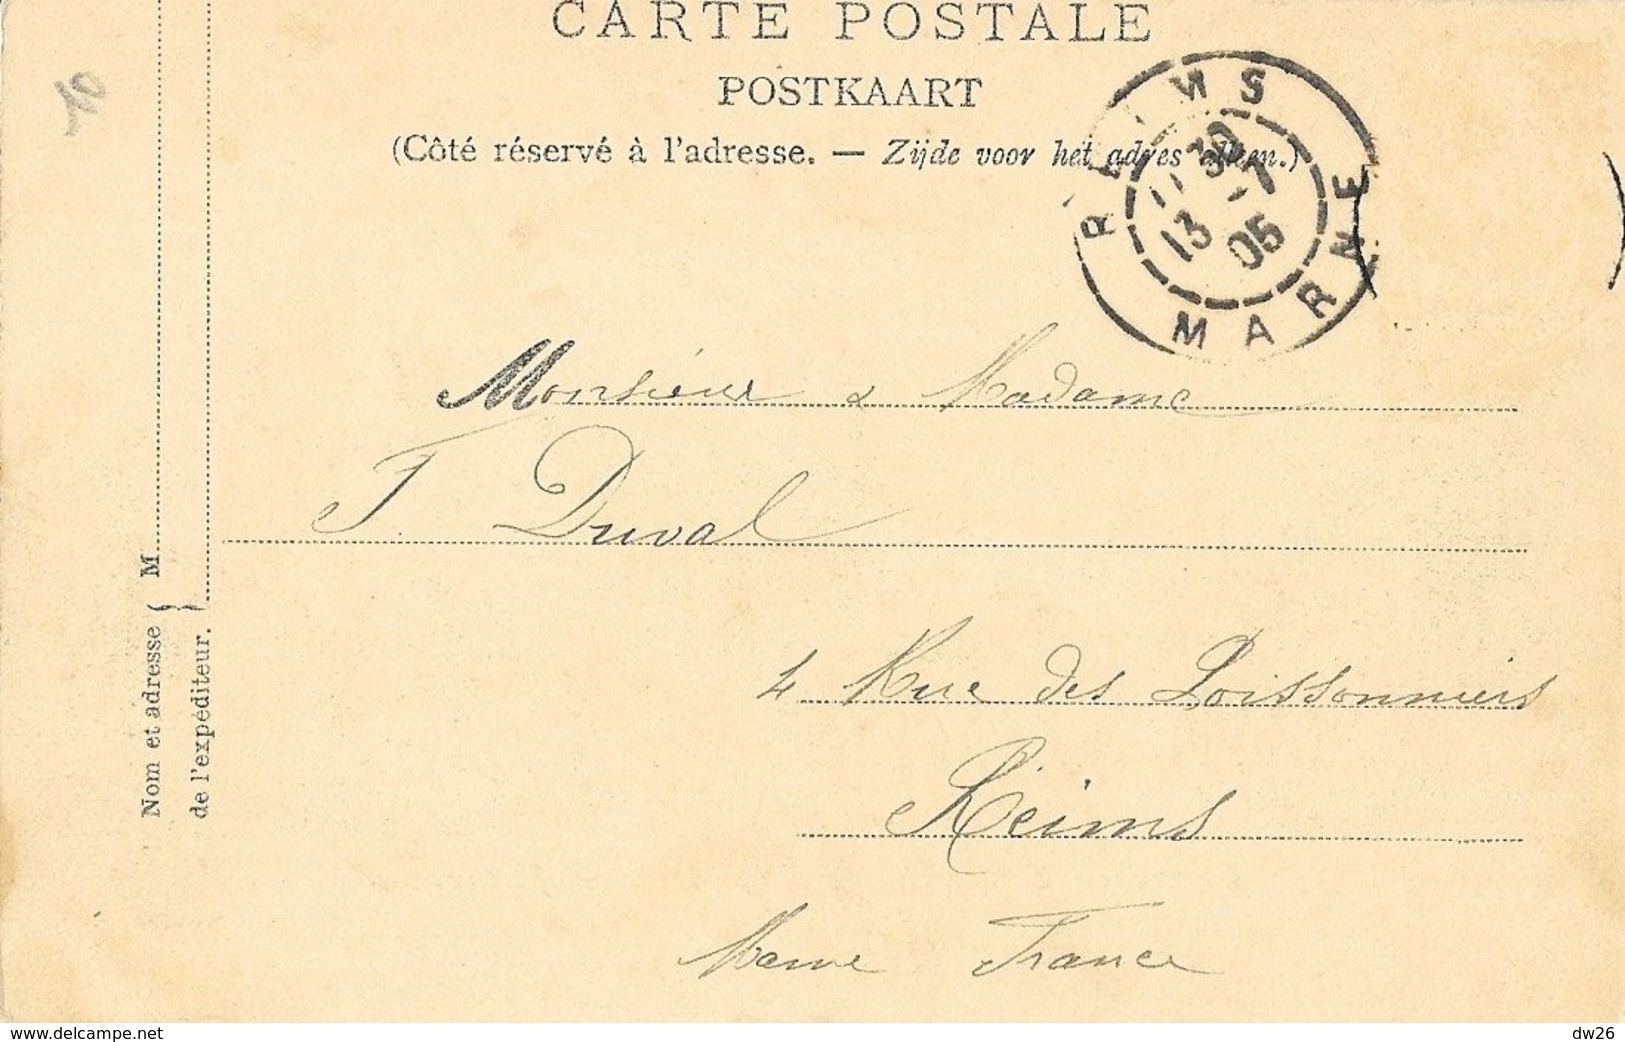 CARTE POSTALE
POSTKAART
(Côté réservé à l'adresse. — Zijde voor het adres alleen.)
10
REIMS
11 30
13 -7
05
MARNE
Monsieur & Madame
F. Duval
4 Rue des Poissonniers
Reims
Marne France
Nom et adresse { M
de l'expéditeur. }
www.delcampe.net
dw26